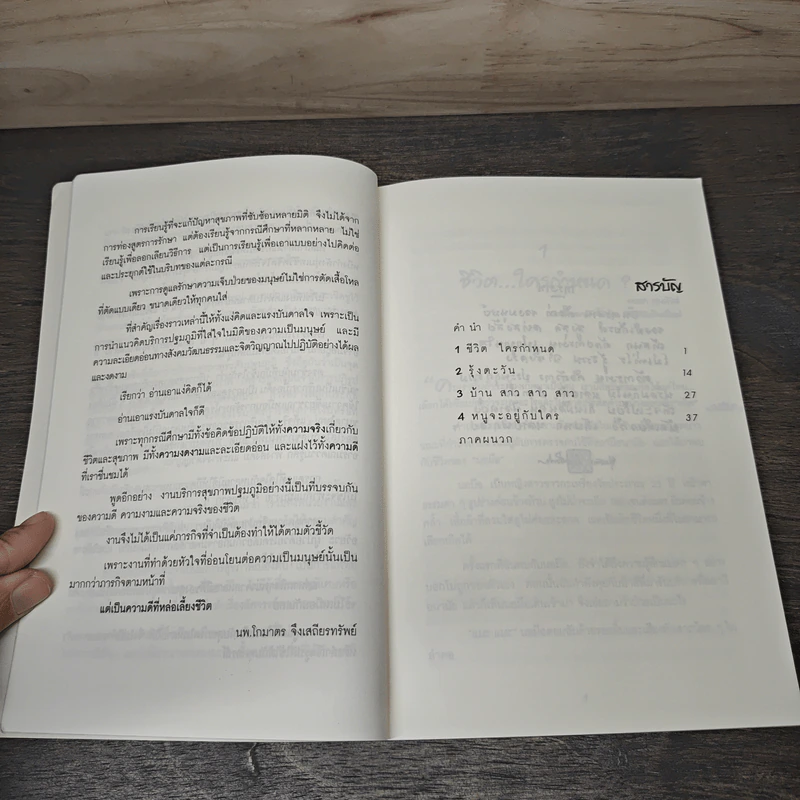 การเรียนรู้ที่จะแก้ปัญหาสุขภาพที่ซับซ้อนหลายมิติ จึงไม่ได้จาก
การท่องสูตรการรักษา แต่ต้องเรียนรู้จากกรณีศึกษาที่หลากหลาย ไม่ใช่
เรียนรู้เพื่อลอกเลียนวิธีการ แต่เป็นการเรียนรู้เพื่อเอาแบบอย่างไปคิดต่อ
และประยุกต์ใช้ในบริบทของแต่ละกรณี
เพราะการดูแลรักษาความเจ็บป่วยของมนุษย์ไม่ใช่การตัดเสื้อโหล
ที่ตัดแบบเดียว ขนาดเดียวให้ทุกคนใส่
ที่สำคัญเรื่องราวเหล่านี้ให้ทั้งแง่คิดและแรงบันดาลใจ เพราะเป็น
การนำแนวคิดบริการปฐมภูมิที่ใส่ใจในมิติของความเป็นมนุษย์ และมี
ความละเอียดอ่อนทางสังคมวัฒนธรรมและจิตวิญญาณไปปฏิบัติอย่างได้ผล
และงดงาม
เรียกว่า อ่านเอาแง่คิดก็ได้
อ่านเอาแรงบันดาลใจก็ดี
เพราะทุกกรณีศึกษามีทั้งข้อคิดข้อปฏิบัติให้ทั้งความจริงเกี่ยวกับ
ชีวิตและสุขภาพ มีทั้งความงดงามและละเอียดอ่อน และแฝงไว้ทั้งความดี
ที่เราชื่นชมได้
พูดอีกอย่าง งานบริการสุขภาพปฐมภูมิอย่างนี้เป็นที่บรรจบกัน
ของความดี ความงามและความจริงของชีวิต
งานจึงไม่ได้เป็นแค่ภารกิจที่จำเป็นต้องทำให้ได้ตามตัวชี้วัด
เพราะงานที่ทำด้วยหัวใจที่อ่อนโยนต่อความเป็นมนุษย์นั้นเป็น
มากกว่าภารกิจตามหน้าที่
แต่เป็นความดีที่หล่อเลี้ยงชีวิต
นพ.โกมาตร จึงเสถียรทรัพย์
สารบัญ
คำนำ
1 ชีวิต ใครกำหนด 1
2 รุ้งตะวัน 14
3 บ้าน สาว สาว สาว 27
4 หนูจะอยู่กับใคร 37
ภาคผนวก